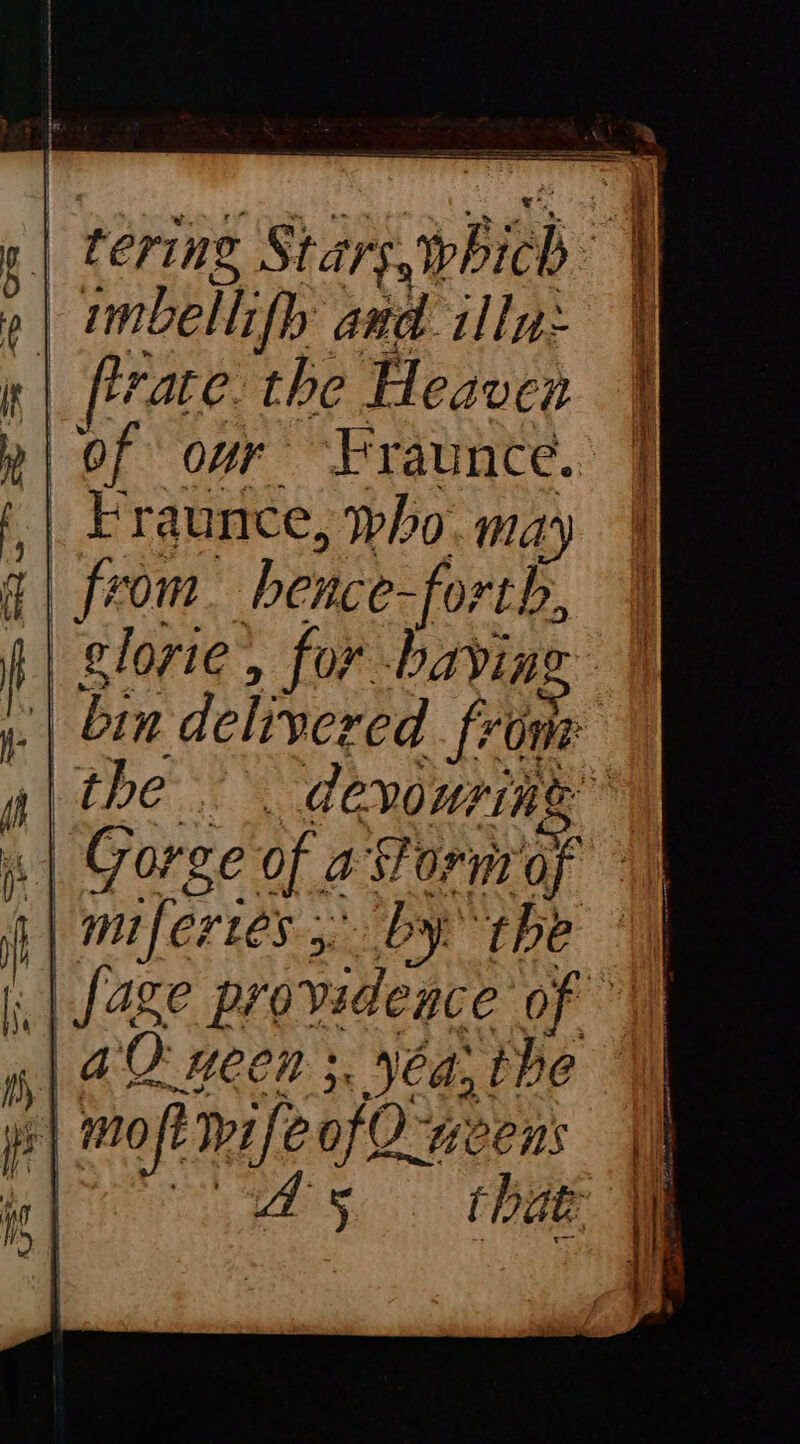 tering Stars, which
imbelliſh and illu-
ſtrate the Heaven
of our Fraunce.
Fraunce, who may
from hence-forth,
glorie, for having
bin delivered from
the devouring
Gorge of a Storm of
miſeries; by the
ſage providence of
a Queen; yea, the
moſt wiſe of Queens
A 5 that